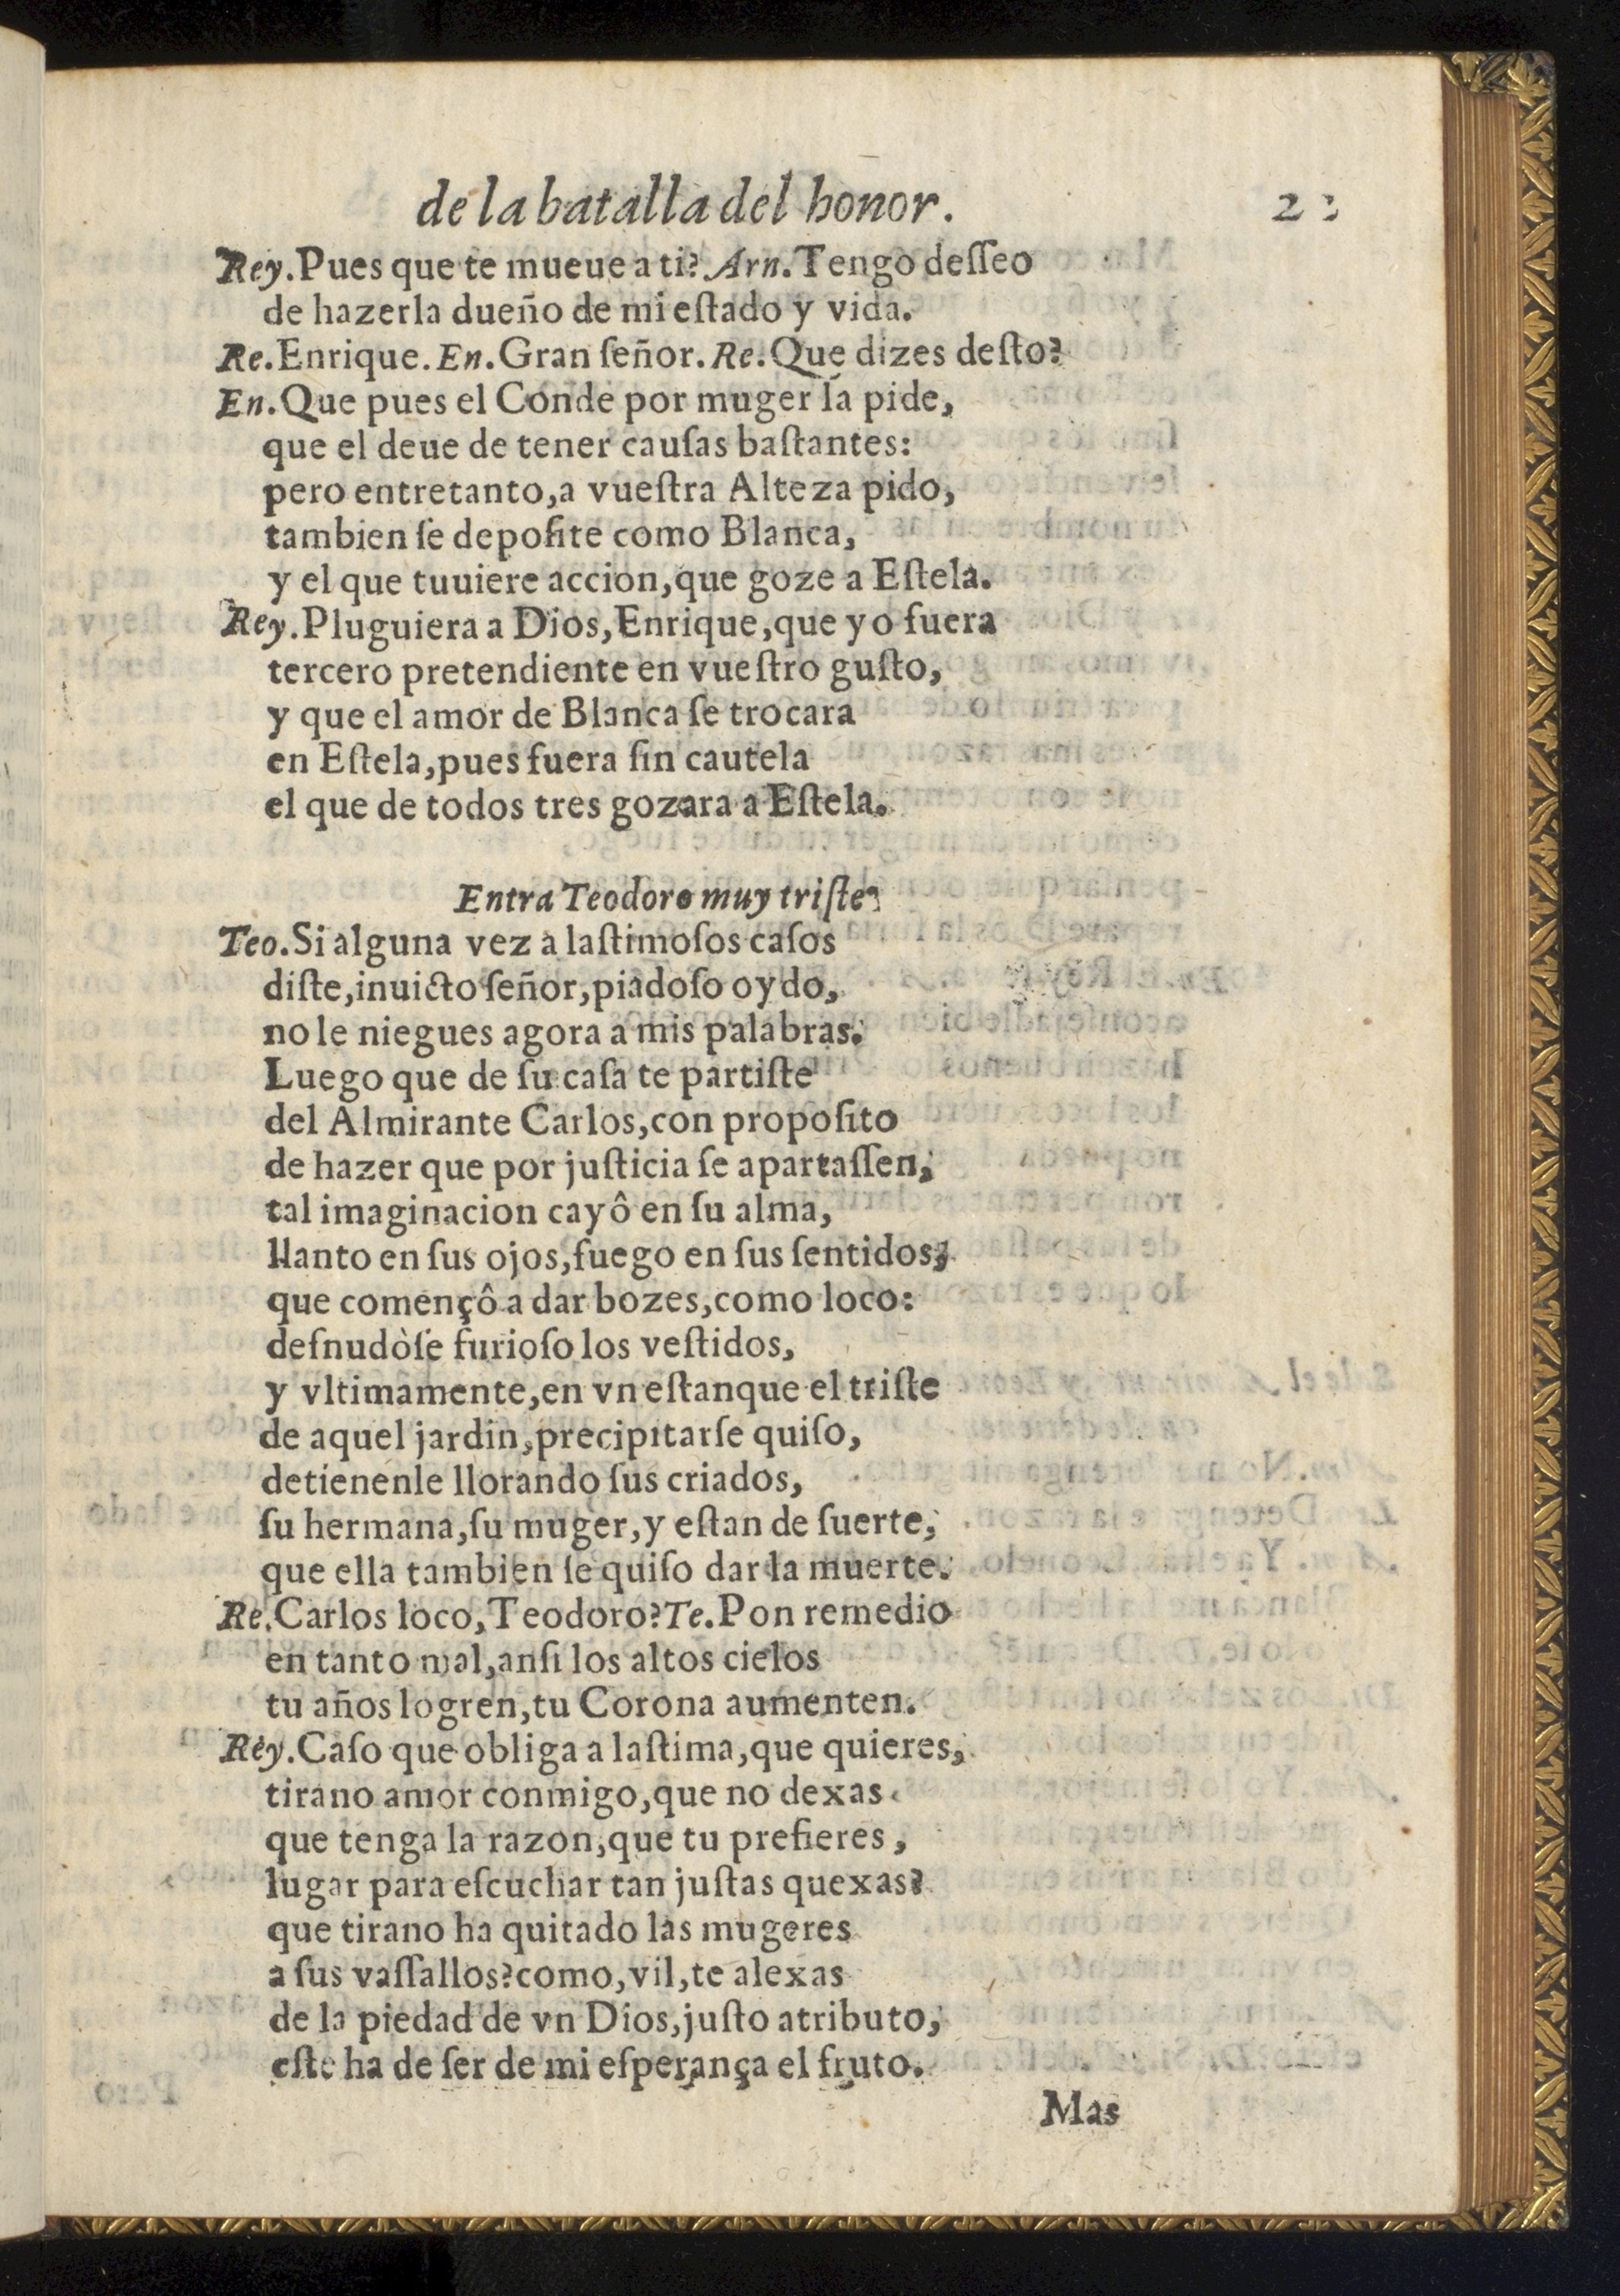 de la batalla del honor.
Rey. Pues que te mueue a ti? Arn. Tengo deſſeo
de hazerla dueño de mi eſtado y vida.
Re. Enrique. En. Gran ſeñor. Re. Que dizes deſto?
En. Que pues el Conde por muger la pide,
que el deue de tener cauſas baſtantes:
pero entretanto, a vueſtra Alteza pido,
tambien ſe depoſite como Blanca,
y el que tuuiere accion, que goze a Eſtela.
Rey. Pluguiera a Dios, Enrique, que yo fuera
tercero pretendiente en vueſtro guſto,
y que el amor de Blanca ſe trocara
en Eſtela, pues fuera ſin cautela
el que de todos tres gozara a Eſtela.
Entra Teodoro muy triſte
Teo. Si alguna vez a laſtimoſos caſos
diſte, inuicto ſeñor, piadoſo oydo,
no le niegues agora a mis palabras.
Luego que de ſu caſa te partiſte
del Almirante Carlos, con propoſito
de hazer que por juſticia ſe apartaſſen,
tal imaginacion cayô en ſu alma,
llanto en ſus ojos, fuego en ſus ſentidos,
que començô a dar bozes, como loco:
deſnudòſe furioſo los veſtidos,
y vltimamente, en vn eſtanque el triſte
de aquel jardin, precipitarſe quiſo,
detienenle llorando ſus criados,
ſu hermana, ſu muger, y eſtan de ſuerte,
que ella tambien ſe quiſo dar la muerte.
Re. Carlos loco, Teodoro? Te. Pon remedio
en tanto mal, anſi los altos cielos
tu años logren, tu Corona aumenten.
Rey. Caſo que obliga a laſtima, que quieres,
tirano amor conmigo, que no dexas
que tenga la razon, que tu prefieres,
lugar para eſcuchar tan juſtas quexas?
que tirano ha quitado las mugeres
a ſus vaſſallos? como, vil, te alexas
de la piedad de vn Dios, juſto atributo,
eſte ha de ſer de mi eſperança el fruto.
Mas